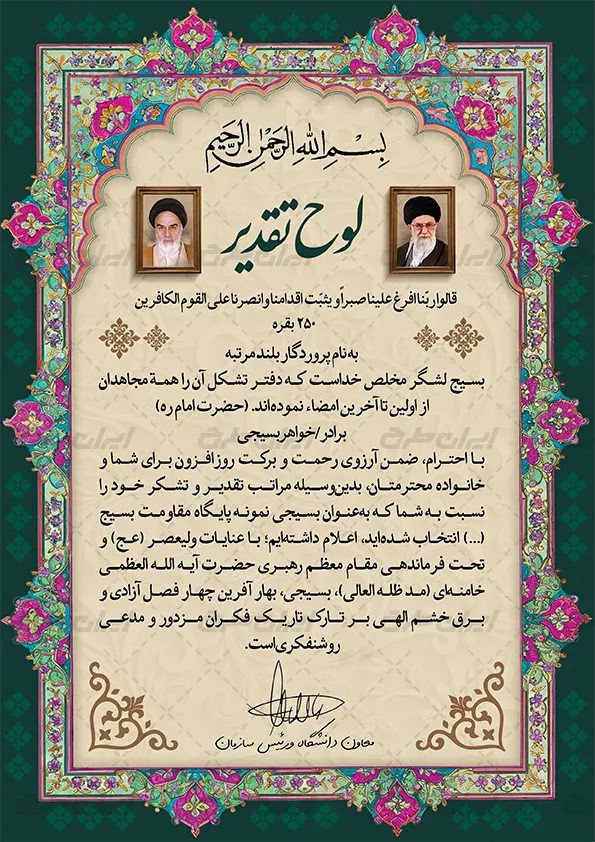 بِسْمِ اللهِ الرَّحْمٰنِ الرَّحِیمِ
لوح تقدیر
قالوا ربّنا افرغ علینا صبراً و یثبّت اقدامنا وانصرنا علی القوم الکافرین
۲۵۰ بقره
به نام پروردگار بلند مرتبه
بسیج لشگر مخلص خداست که دفتر تشکل آن را همة مجاهدان
از اولین تا آخرین امضاء نموده‌اند. (حضرت امام ره)
برادر/خواهر بسیجی
با احترام، ضمن آرزوی رحمت و برکت روزافزون برای شما و
خانواده محترمتان، بدین‌وسیله مراتب تقدیر و تشکر خود را
نسبت به شما که به‌عنوان بسیجی نمونه پایگاه مقاومت بسیج
(...) انتخاب شده‌اید، اعلام داشته‌ایم؛ با عنایات ولیعصر (عج) و
تحت فرماندهی مقام معظم رهبری حضرت آیه الله العظمی
خامنه‌ای (مد ظله العالی)، بسیجی، بهار آفرین چهار فصل آزادی و
برق خشم الهی بر تارک تاریک فکران مزدور و مدعی
روشنفکری است.
معاون دانشگاه و رئیس سازمان
ایران طرح
ایران طرح
ایران طرح